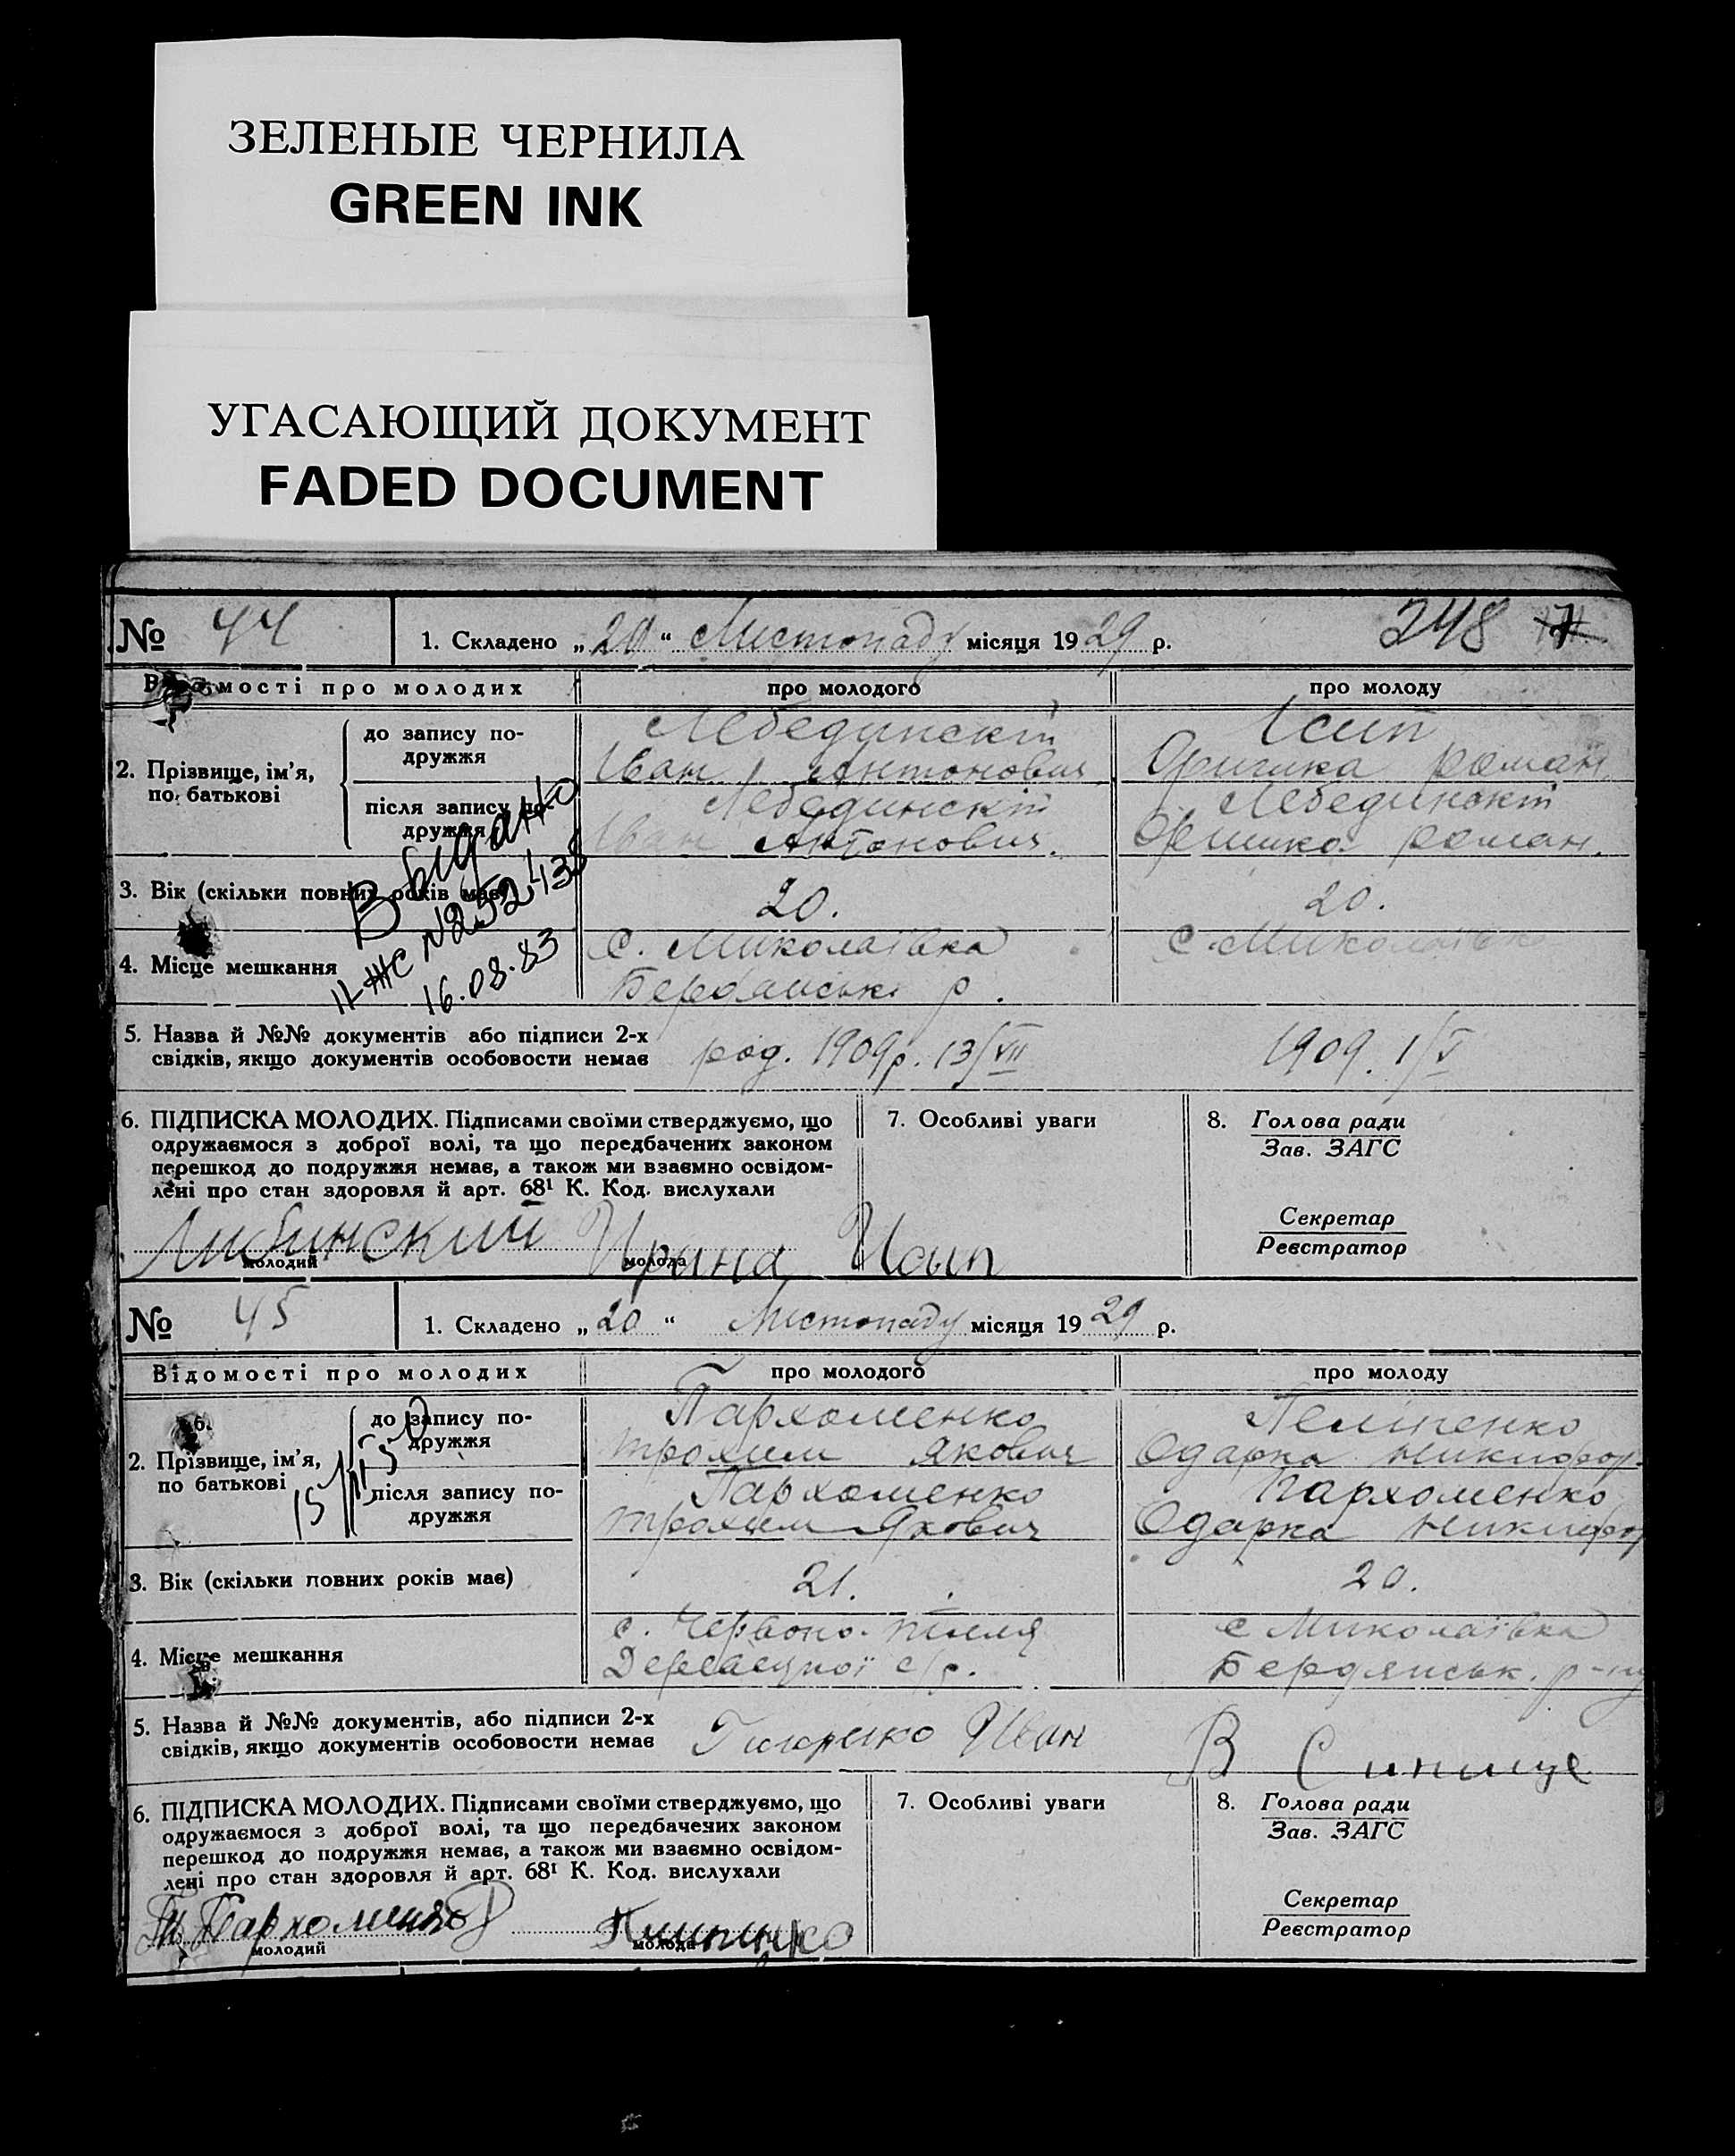 ЗЕЛЕНЫЕ ЧЕРНИЛА
GREEN INK
УГАСАЮЩИЙ ДОКУМЕНТ
FADED DOCUMENT
№ 44 1. Складено „20“ Листопаду місяця 1929 р. 248
Відомості про молодих про молодого про молоду
2. Прізвище, ім’я, по батькові
до запису подружжя
Лебединскій
Іван Антонович
Ісип
Оришка роман
після запису подружжя
Лебединскій
Іван Антонович.
Лебединскій
Оришка роман.
Видано
II-ЖС №252438
16.08.83
3. Вік (скільки повних років має) 20. 20.
4. Місце мешкання
с. Миколаївка
р.
с. Миколаївка
5. Назва й №№ документів або підписи 2-х
свідків, якщо документів особовости немає
род. 1909р. 13/VII 1909. 1/V
6. ПІДПИСКА МОЛОДИХ. Підписами своїми стверджуємо, що
одружаємося з доброї волі, та що передбачених законом
перешкод до подружжя немає, а також ми взаємно освідом-
лені про стан здоровля й арт. 68¹ К. Код. вислухали
7. Особливі уваги
8. Голова ради
Зав. ЗАГС
Секретар
Реєстратор
Либинский Ирина Исип
молодий молода
№ 45 1. Складено „20“ Листопаду місяця 1929 р.
Відомості про молодих про молодого про молоду
2. Прізвище, ім’я,
по батькові
до запису по-
дружжя
Пархоменко
трохим Якович
Пелипенко
Одарка Никифор.
після запису по-
дружжя
Пархоменко
трохим Якович
Пархоменко
Одарка Никифор
3. Вік (скільки повних років має) 21. 20.
4. Місце мешкання
с. Червоно-
с/р.
с Миколаївка
Бердянськ. р-ну
5. Назва й №№ документів, або підписи 2-х
свідків, якщо документів особовости немає
Иван
В
6. ПІДПИСКА МОЛОДИХ. Підписами своїми стверджуємо, що
одружаємося з доброї волі, та що передбачених законом
перешкод до подружжя немає, а також ми взаємно освідом-
лені про стан здоровля й арт. 68¹ К. Код. вислухали
7. Особливі уваги
8. Голова ради
Зав. ЗАГС
Секретар
Реєстратор
Пархоменко
молодий молода